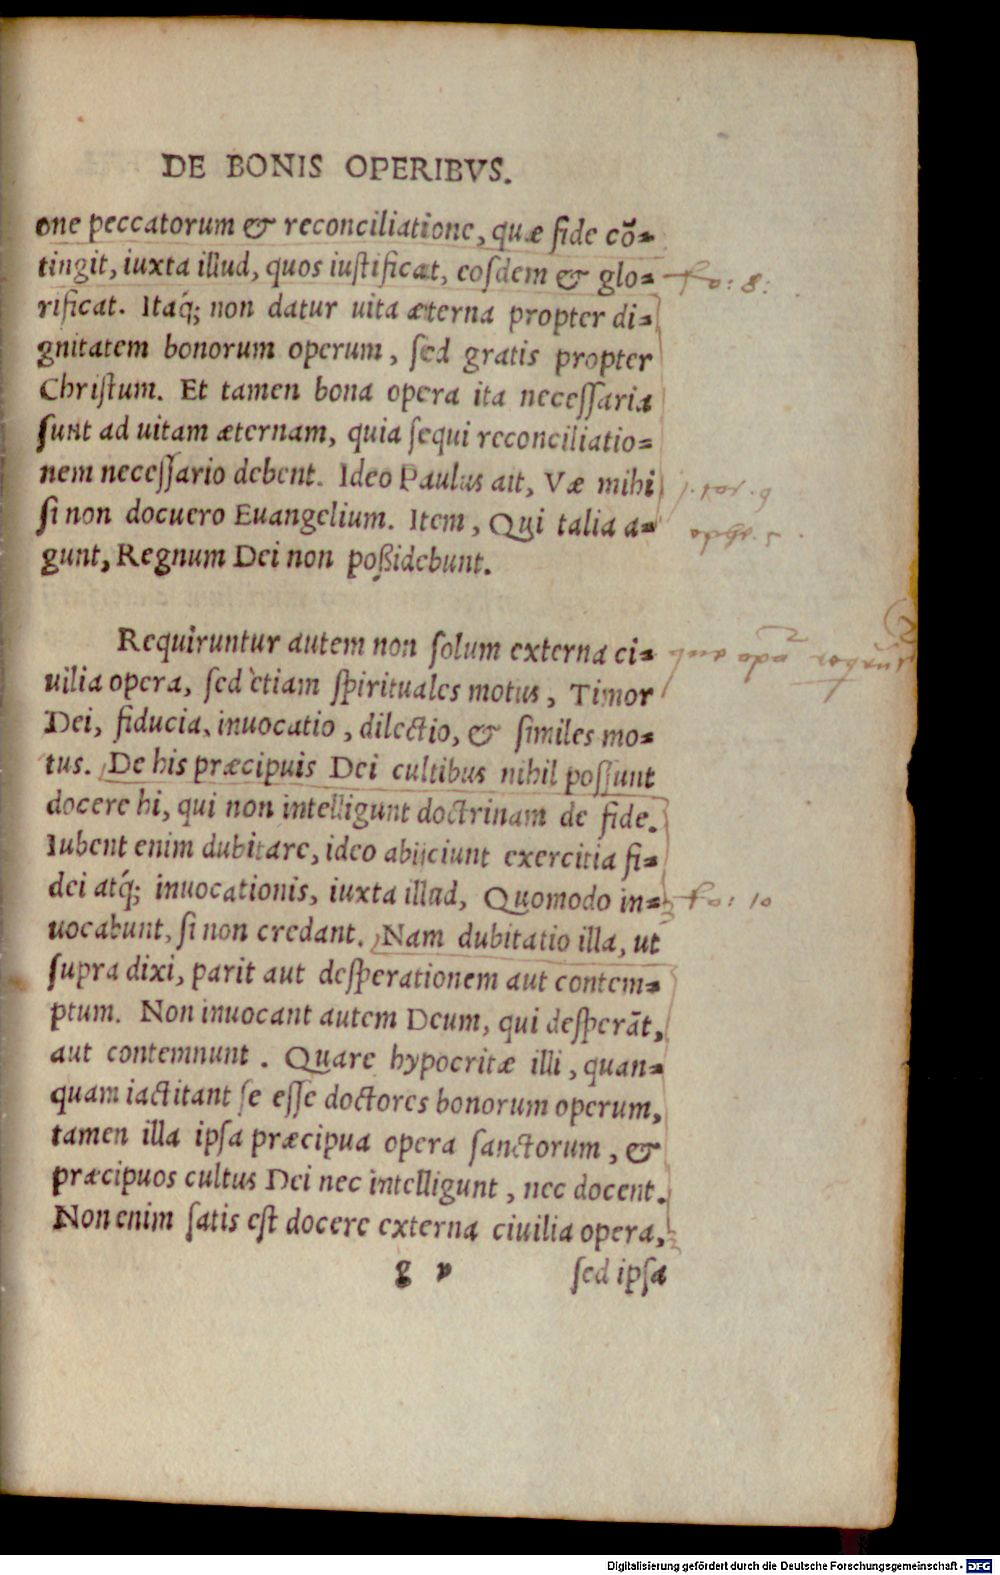 DE BONIS OPERIBVS.
one peccatorum & reconciliatione, quæ fide cō=
tingit, iuxta illud, quos iustificat, eosdem & glo=
ro: 8:
rificat. Itaq́; non datur uita æterna propter di=
gnitatem bonorum operum, sed gratis propter
Christum. Et tamen bona opera ita necessaria
sunt ad uitam æternam, quia sequi reconciliatio=
nem necessario debent. Ideo Paulus ait, Væ mihi
si non docuero Euangelium. Item, Qui talia a=
gunt, Regnum Dei non poßidebunt.
Requiruntur autem non solum externa ci=
uilia opera, sed etiam spirituales motus, Timor
Dei, fiducia, inuocatio, dilectio, & similes mo=
tus. De his præcipuis Dei cultibus nihil possunt
docere hi, qui non intelligunt doctrinam de fide.
Iubent enim dubitare, ideo abijciunt exercitia fi=
dei atq́; inuocationis, iuxta illud, Quomodo in=
ro: 10
uocabunt, si non credant. Nam dubitatio illa, ut
supra dixi, parit aut desperationem aut contem=
ptum. Non inuocant autem Deum, qui desperāt,
aut contemnunt. Quare hypocritæ illi, quan=
quam iactitant se esse doctores bonorum operum,
tamen illa ipsa præcipua opera sanctorum, &
præcipuos cultus Dei nec intelligunt, nec docent.
Non enim satis est docere externa ciuilia opera,
g v
sed ipsa
Digitalisierung gefördert durch die Deutsche Forschungsgemeinschaft - DFG